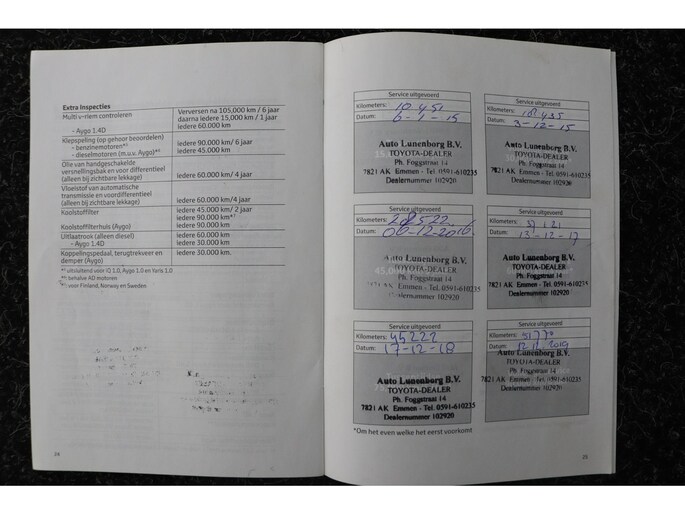 Extra Inspecties
Multi v-riem controleren
Verversen na 105,000 km / 6 jaar
daarna iedere 15,000 km / 1 jaar
- Aygo 1.4D
iedere 60.000 km
Klepspeling (op gehoor beoordelen)
- benzinemotoren*¹
iedere 90.000 km/ 6 jaar
- dieselmotoren (m.u.v. Aygo)*²
iedere 45.000 km
Olie van handgeschakelde
versnellingsbak en voor differentieel
(alleen bij zichtbare lekkage)
iedere 60.000 km/4 jaar
Vloeistof van automatische
transmissie en voordifferentieel
(alleen bij zichtbare lekkage)
iedere 60.000 km/4 jaar
Koolstoffilter
iedere 45.000 km/ 2 jaar
iedere 90.000 km*³
Koolstoffilterhuis (Aygo)
iedere 90.000 km
Uitlaatrook (alleen diesel)
iedere 60.000 km
- Aygo 1.4D
iedere 30.000 km
Koppelingspedaal, terugtrekveer en
demper (Aygo)
iedere 30.000 km.
*¹ uitsluitend voor iQ 1.0, Aygo 1.0 en Yaris 1.0
*²: behalve AD motoren
*³: voor Finland, Norway en Sweden
24
Service uitgevoerd
Kilometers: 10.451
Datum: 6-1-15
Auto Lunenborg B.V.
TOYOTA-DEALER
Ph. Foggstraat 14
7821 AK Emmen - Tel. 0591-610235
Dealernummer 102920
Service uitgevoerd
Kilometers:
Datum: 3-12-15
Auto Lunenborg B.V.
TOYOTA-DEALER
Ph. Foggstraat 14
7821 AK Emmen - Tel. 0591-610235
Dealernummer 102920
Service uitgevoerd
Kilometers: 28522
Datum: 06-12-2016
Auto Lunenborg B.V.
TOYOTA-DEALER
Ph. Foggstraat 14
7821 AK Emmen - Tel. 0591-610235
Dealernummer 102920
Service uitgevoerd
Kilometers:
Datum: 13-12-17
Auto Lunenborg B.V.
TOYOTA-DEALER
Ph. Foggstraat 14
7821 AK Emmen - Tel. 0591-610235
Dealernummer 102920
Service uitgevoerd
Kilometers: 45222
Datum: 17-12-18
Auto Lunenborg B.V.
TOYOTA-DEALER
Ph. Foggstraat 14
7821 AK Emmen - Tel. 0591-610235
Dealernummer 102920
Service uitgevoerd
Kilometers:
Datum:
Auto Lunenborg B.V.
TOYOTA-DEALER
Ph. Foggstraat 14
7821 AK Emmen - Tel. 0591-610235
Dealernummer 102920
*Om het even welke het eerst voorkomt
25